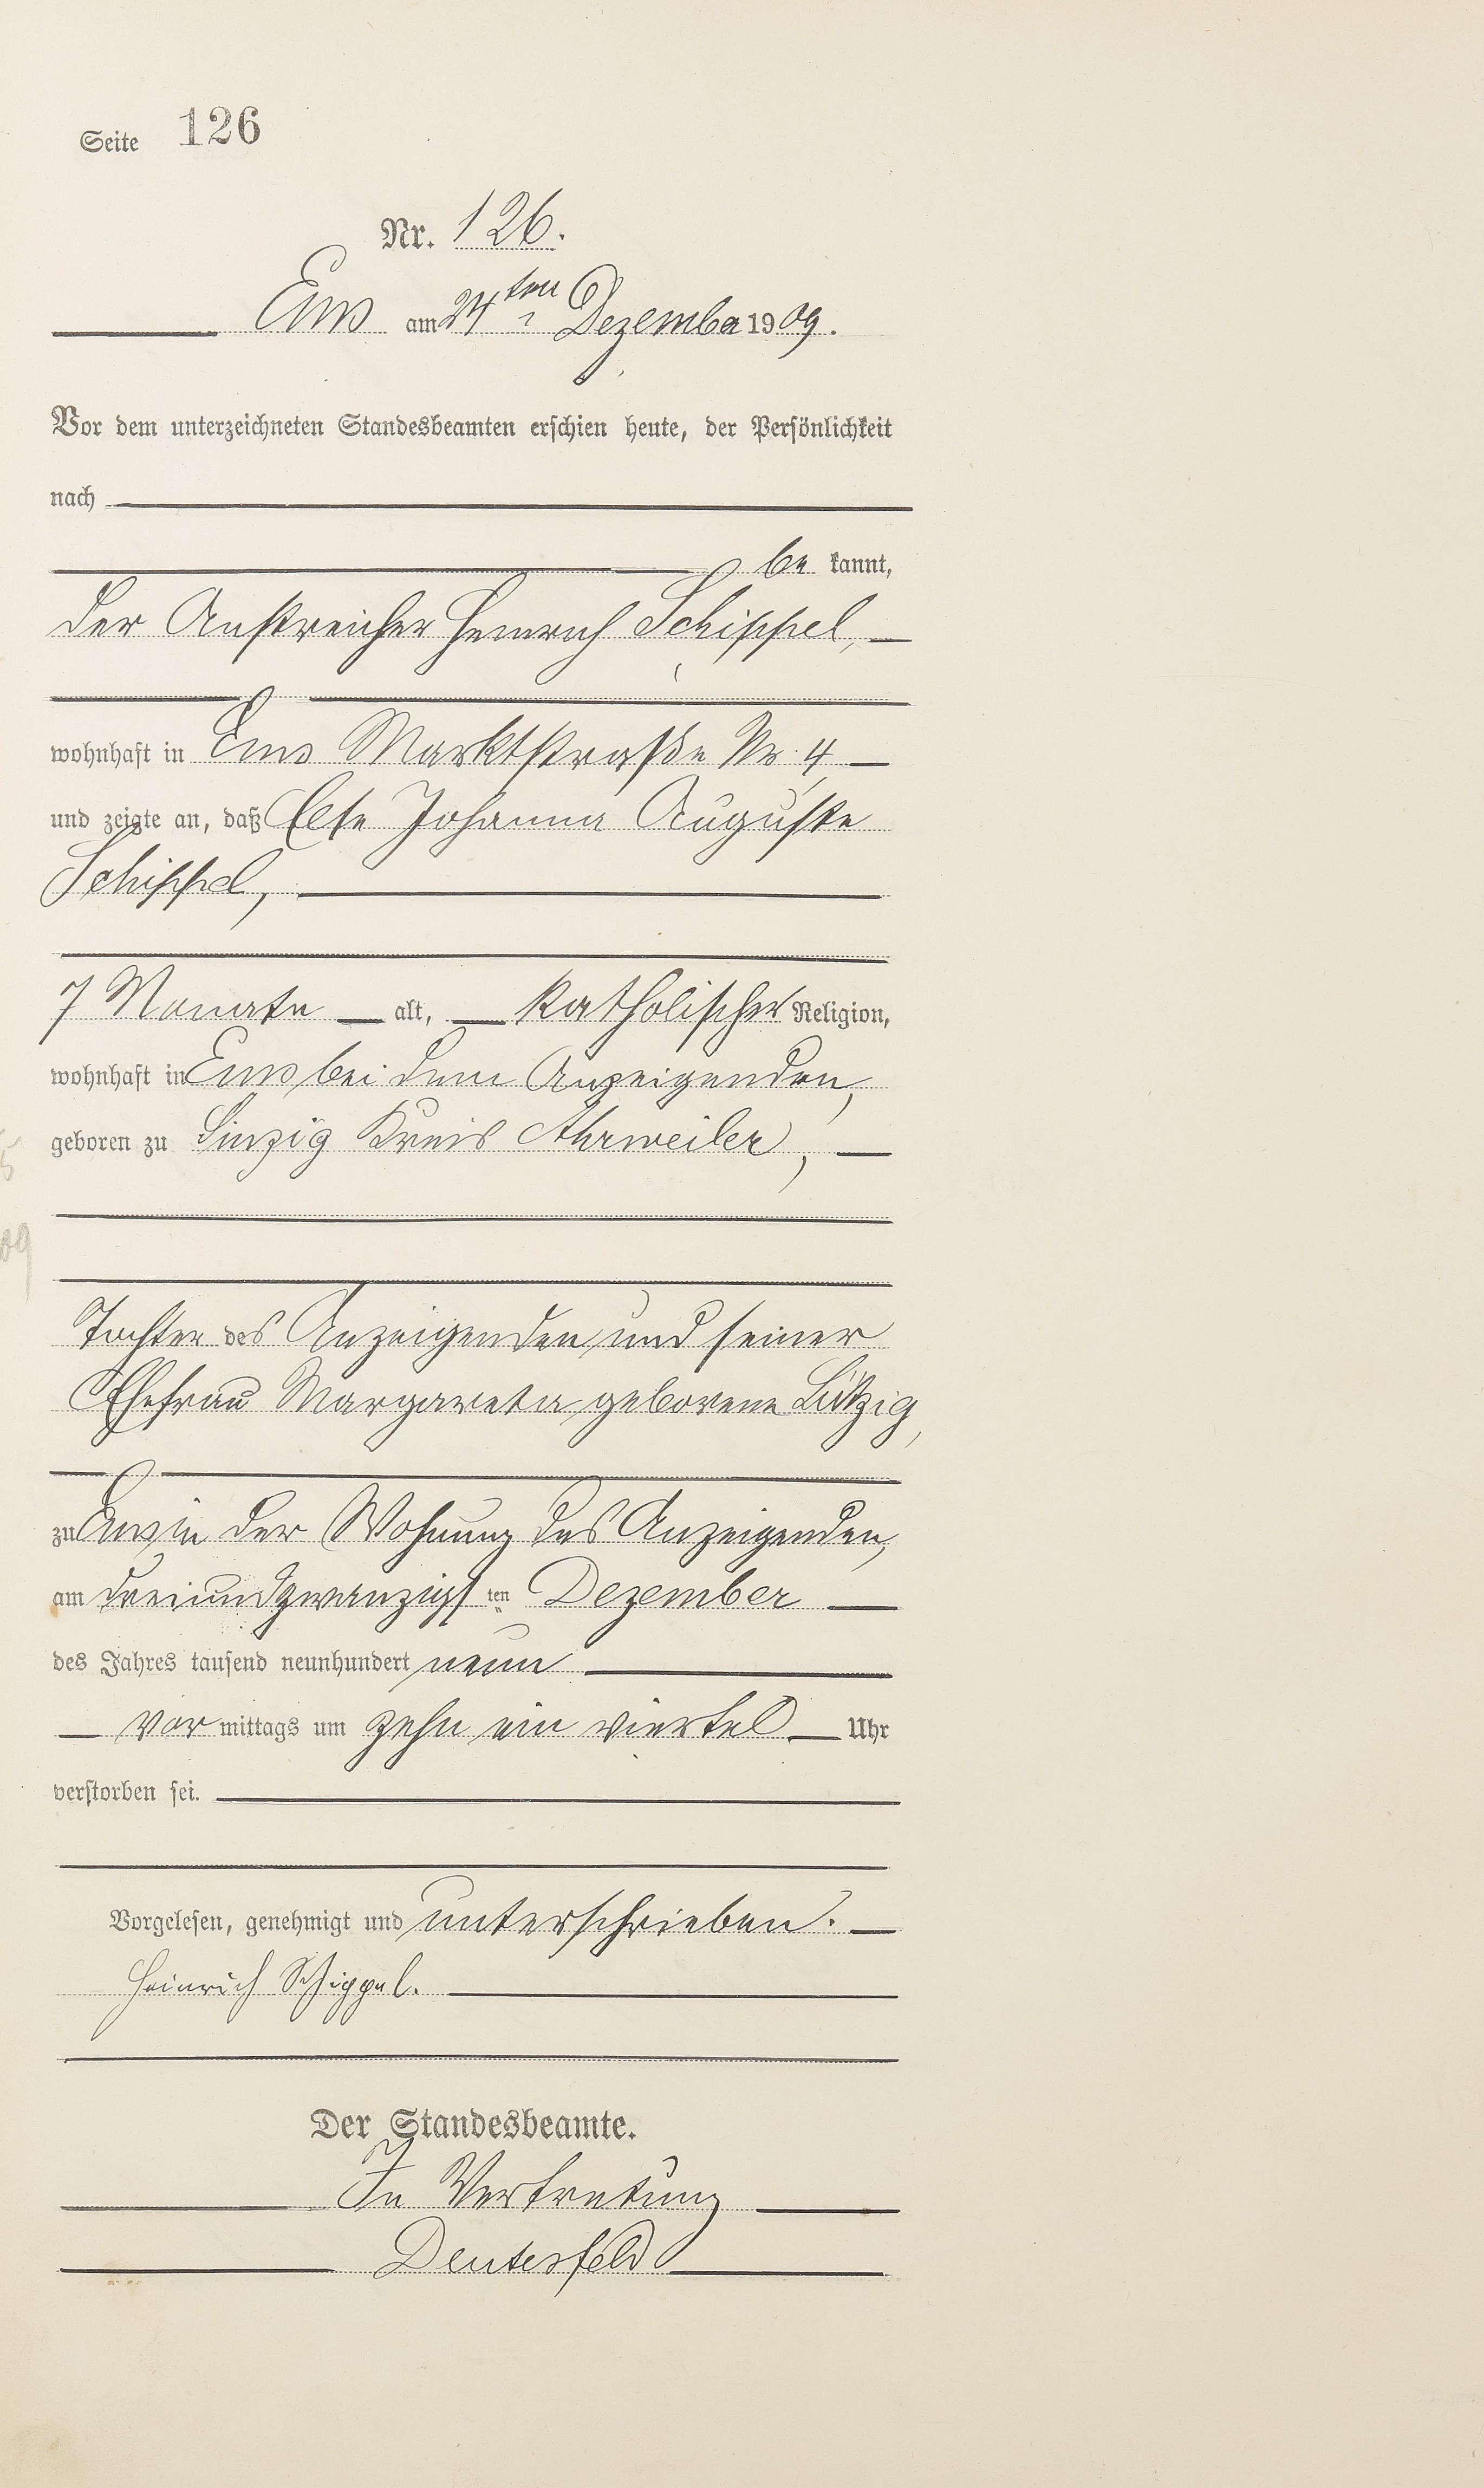 Seite 126
Nr. 126.
Ems am 24ten Dezember 1909.
Vor dem unterzeichneten Standesbeamten erschien heute, der Persönlichkeit
nach
be kannt,
der Anstreicher Heinrich Schippel,
wohnhaft in Ems Marktstraße Nr. 4
und zeigte an, daß Else Johanna Auguste
Schippel,
7 Monate alt, katholischer Religion,
wohnhaft in Ems bei dem Anzeigenden,
geboren zu Sinzig Kreis Ahrweiler,
09
Tochter des Anzeigenden und seiner
Ehefrau Margareta geborene Lützig,
zu Ems in der Wohnung des Anzeigenden,
am dreiundzwanzigsten Dezember
des Jahres tausend neunhundert neun
vor mittags um zehn ein viertel Uhr
verstorben sei.
Vorgelesen, genehmigt und unterschrieben.
Heinrich Schippel.
Der Standesbeamte.
In Vertretung
Deutesfeld